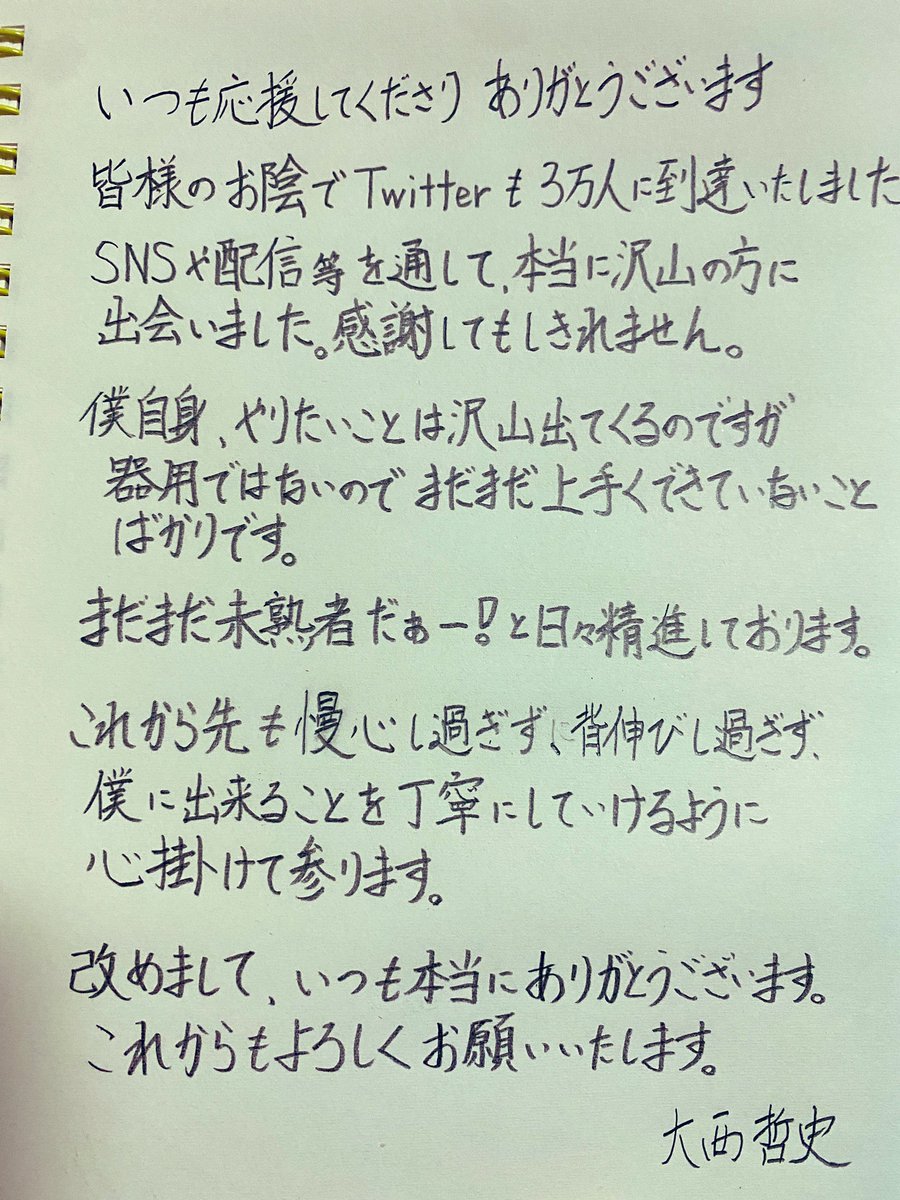 いつも応援してくださり ありがとうございます
皆様のお陰でTwitterも3万人に到達いたしました
SNSや配信等を通して、本当に沢山の方に
出会いました。感謝してもしきれません。
僕自身、やりたいことは沢山出てくるのですが
器用ではないのでまだまだ上手くできていないこと
ばかりです。
まだまだ未熟者だぁー!と日々精進しております。
これから先も慢心し過ぎず、背伸びし過ぎず、
僕に出来ることを丁寧にしていけるように
心掛けて参ります。
改めまして、いつも本当にありがとうございます。
これからもよろしくお願いいたします。
大西哲史